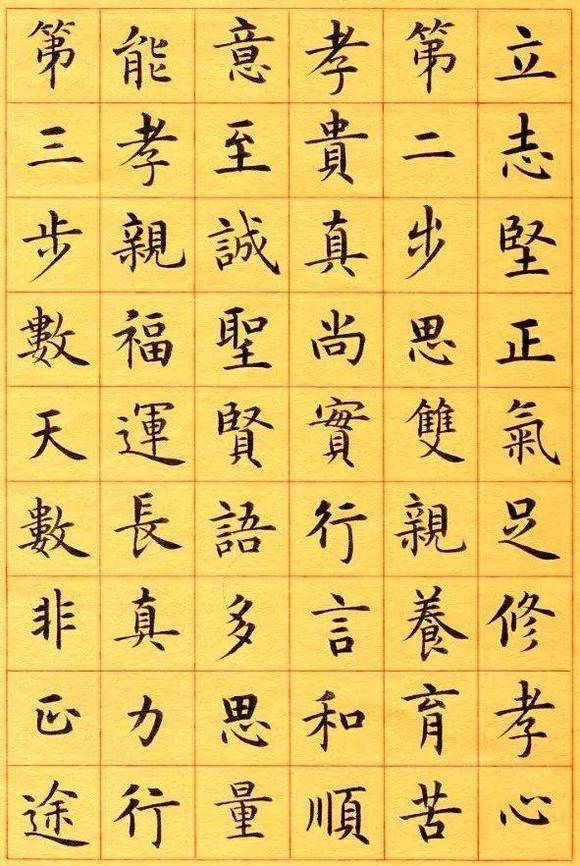 立志堅正氣足修孝心
第二步思雙親養育苦
孝貴真尚實行言和順
意至誠聖賢語多思量
能孝親福運長真力行
第三步數天數非正途